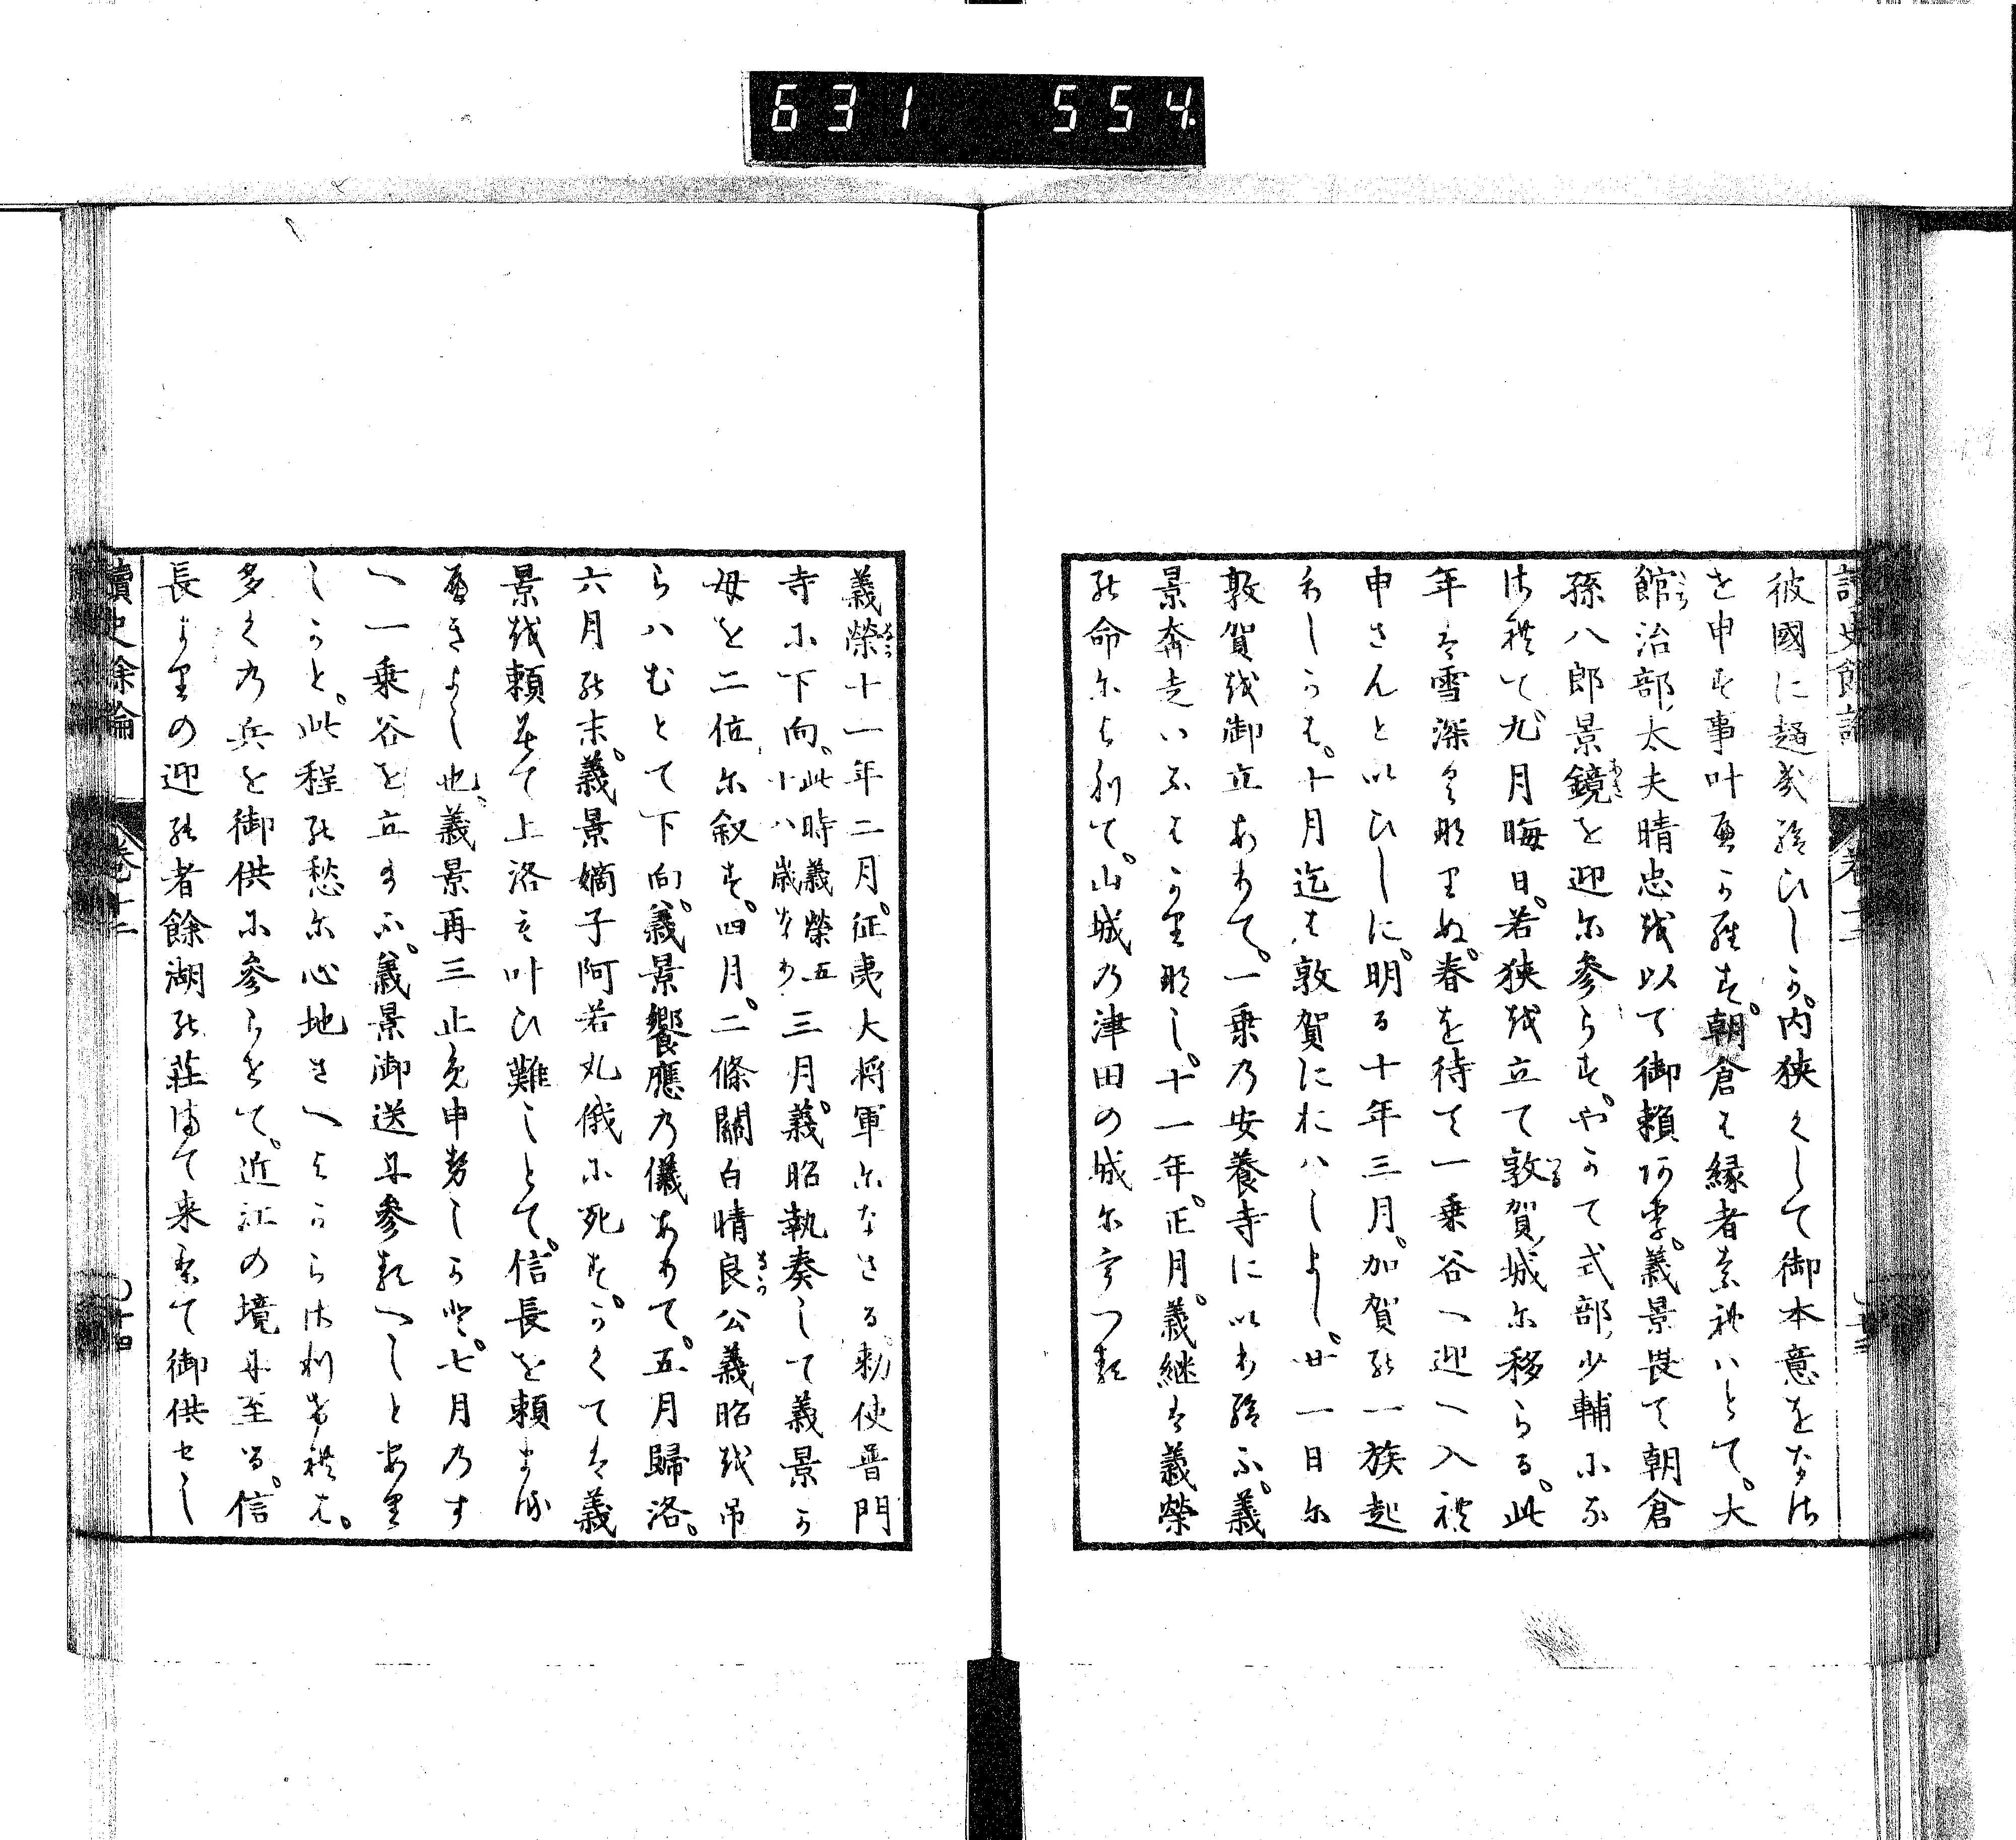 631 554
讀史餘論 卷十二
彼國に趣き給ひしが。内狹くして御本意をなさ
を申す事叶べからず。朝倉は縁者なればとて。大
館治部太夫晴忠を以て御頼りあり。義景畏て朝倉
孫八郎景鏡を迎に參らす。やがて式部少輔になさ
さ禮て。九月晦日。若狹を立て敦賀城に移らる。此
年は雪深くなりぬ。春を待て一乗谷へ迎へ入禮
申さんといひしに。明る十年三月。加賀の一族起
わしかば。十月迄は敦賀におハしまし。廿一日に
敦賀を御立ありて。一乗乃安養寺にいり給ふ。義
景奔走いふばかりなし。十一年。正月。義継は義榮
の命により て。山城乃津田の城にうつる
義榮十一年二月。征夷大将軍になさる勅使普門
寺に下向。此時義榮五十八歳なり三月。義昭執奏して義景が
母を二位に叙す。四月。二條關白晴良公義昭を吊
らハむとて下向。義景饗應乃儀ありて。五月歸洛。
六月の末。義景嫡子阿若丸俄に死す。かくては義
景を頼みて上洛は叶ひ難しとて。信長を頼まる
べきよし也。義景再三止め申勢しかど。七月乃す
へ一乗谷を立給ふ。義景御送に參るへしとあり
しかど。此程の愁に心地さへよからさりければ。
多くの兵を御供に參らせて。近江の境に至る。信
長よりの迎の者餘湖の莊まで来りて御供せし
讀史餘論 卷十二 〇十四